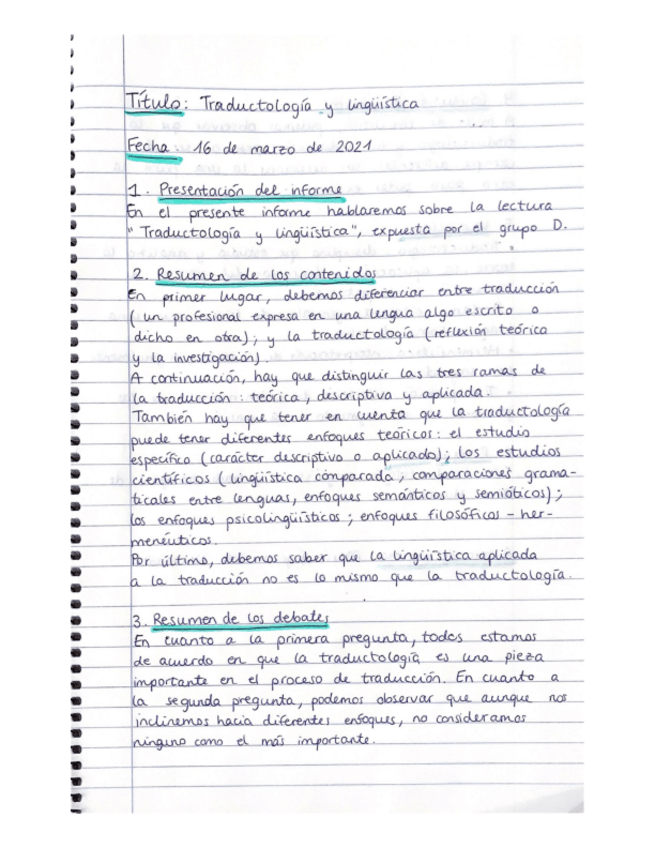 Título: Traductología y lingüística
Fecha: 16 de marzo de 2021
1. Presentación del informe
En el presente informe hablaremos sobre la lectura
"Traductología y lingüística", expuesta por el grupo D.
2. Resumen de los contenidos
En primer lugar, debemos diferenciar entre traducción
(un profesional expresa en una lengua algo escrito o
dicho en otra); y la traductología (reflexión teórica
y la investigación).
A continuación, hay que distinguir las tres ramas de
la traducción: teórica, descriptiva y aplicada.
También hay que tener en cuenta que la traductología
puede tener diferentes enfoques teóricos: el estudio
específico (carácter descriptivo o aplicado); los estudios
científicos (lingüística comparada, comparaciones grama-
ticales entre lenguas, enfoques semánticos y semióticos);
los enfoques psicolingüísticos; enfoques filosóficos - her-
menéuticos.
Por último, debemos saber que la lingüística aplicada
a la traducción no es lo mismo que la traductología.
3. Resumen de los debates
En cuanto a la primera pregunta, todos estamos
de acuerdo en que la traductología es una pieza
importante en el proceso de traducción. En cuanto a
la segunda pregunta, podemos observar que aunque nos
inclinemos hacia diferentes enfoques, no consideramos
ninguno como el más importante.